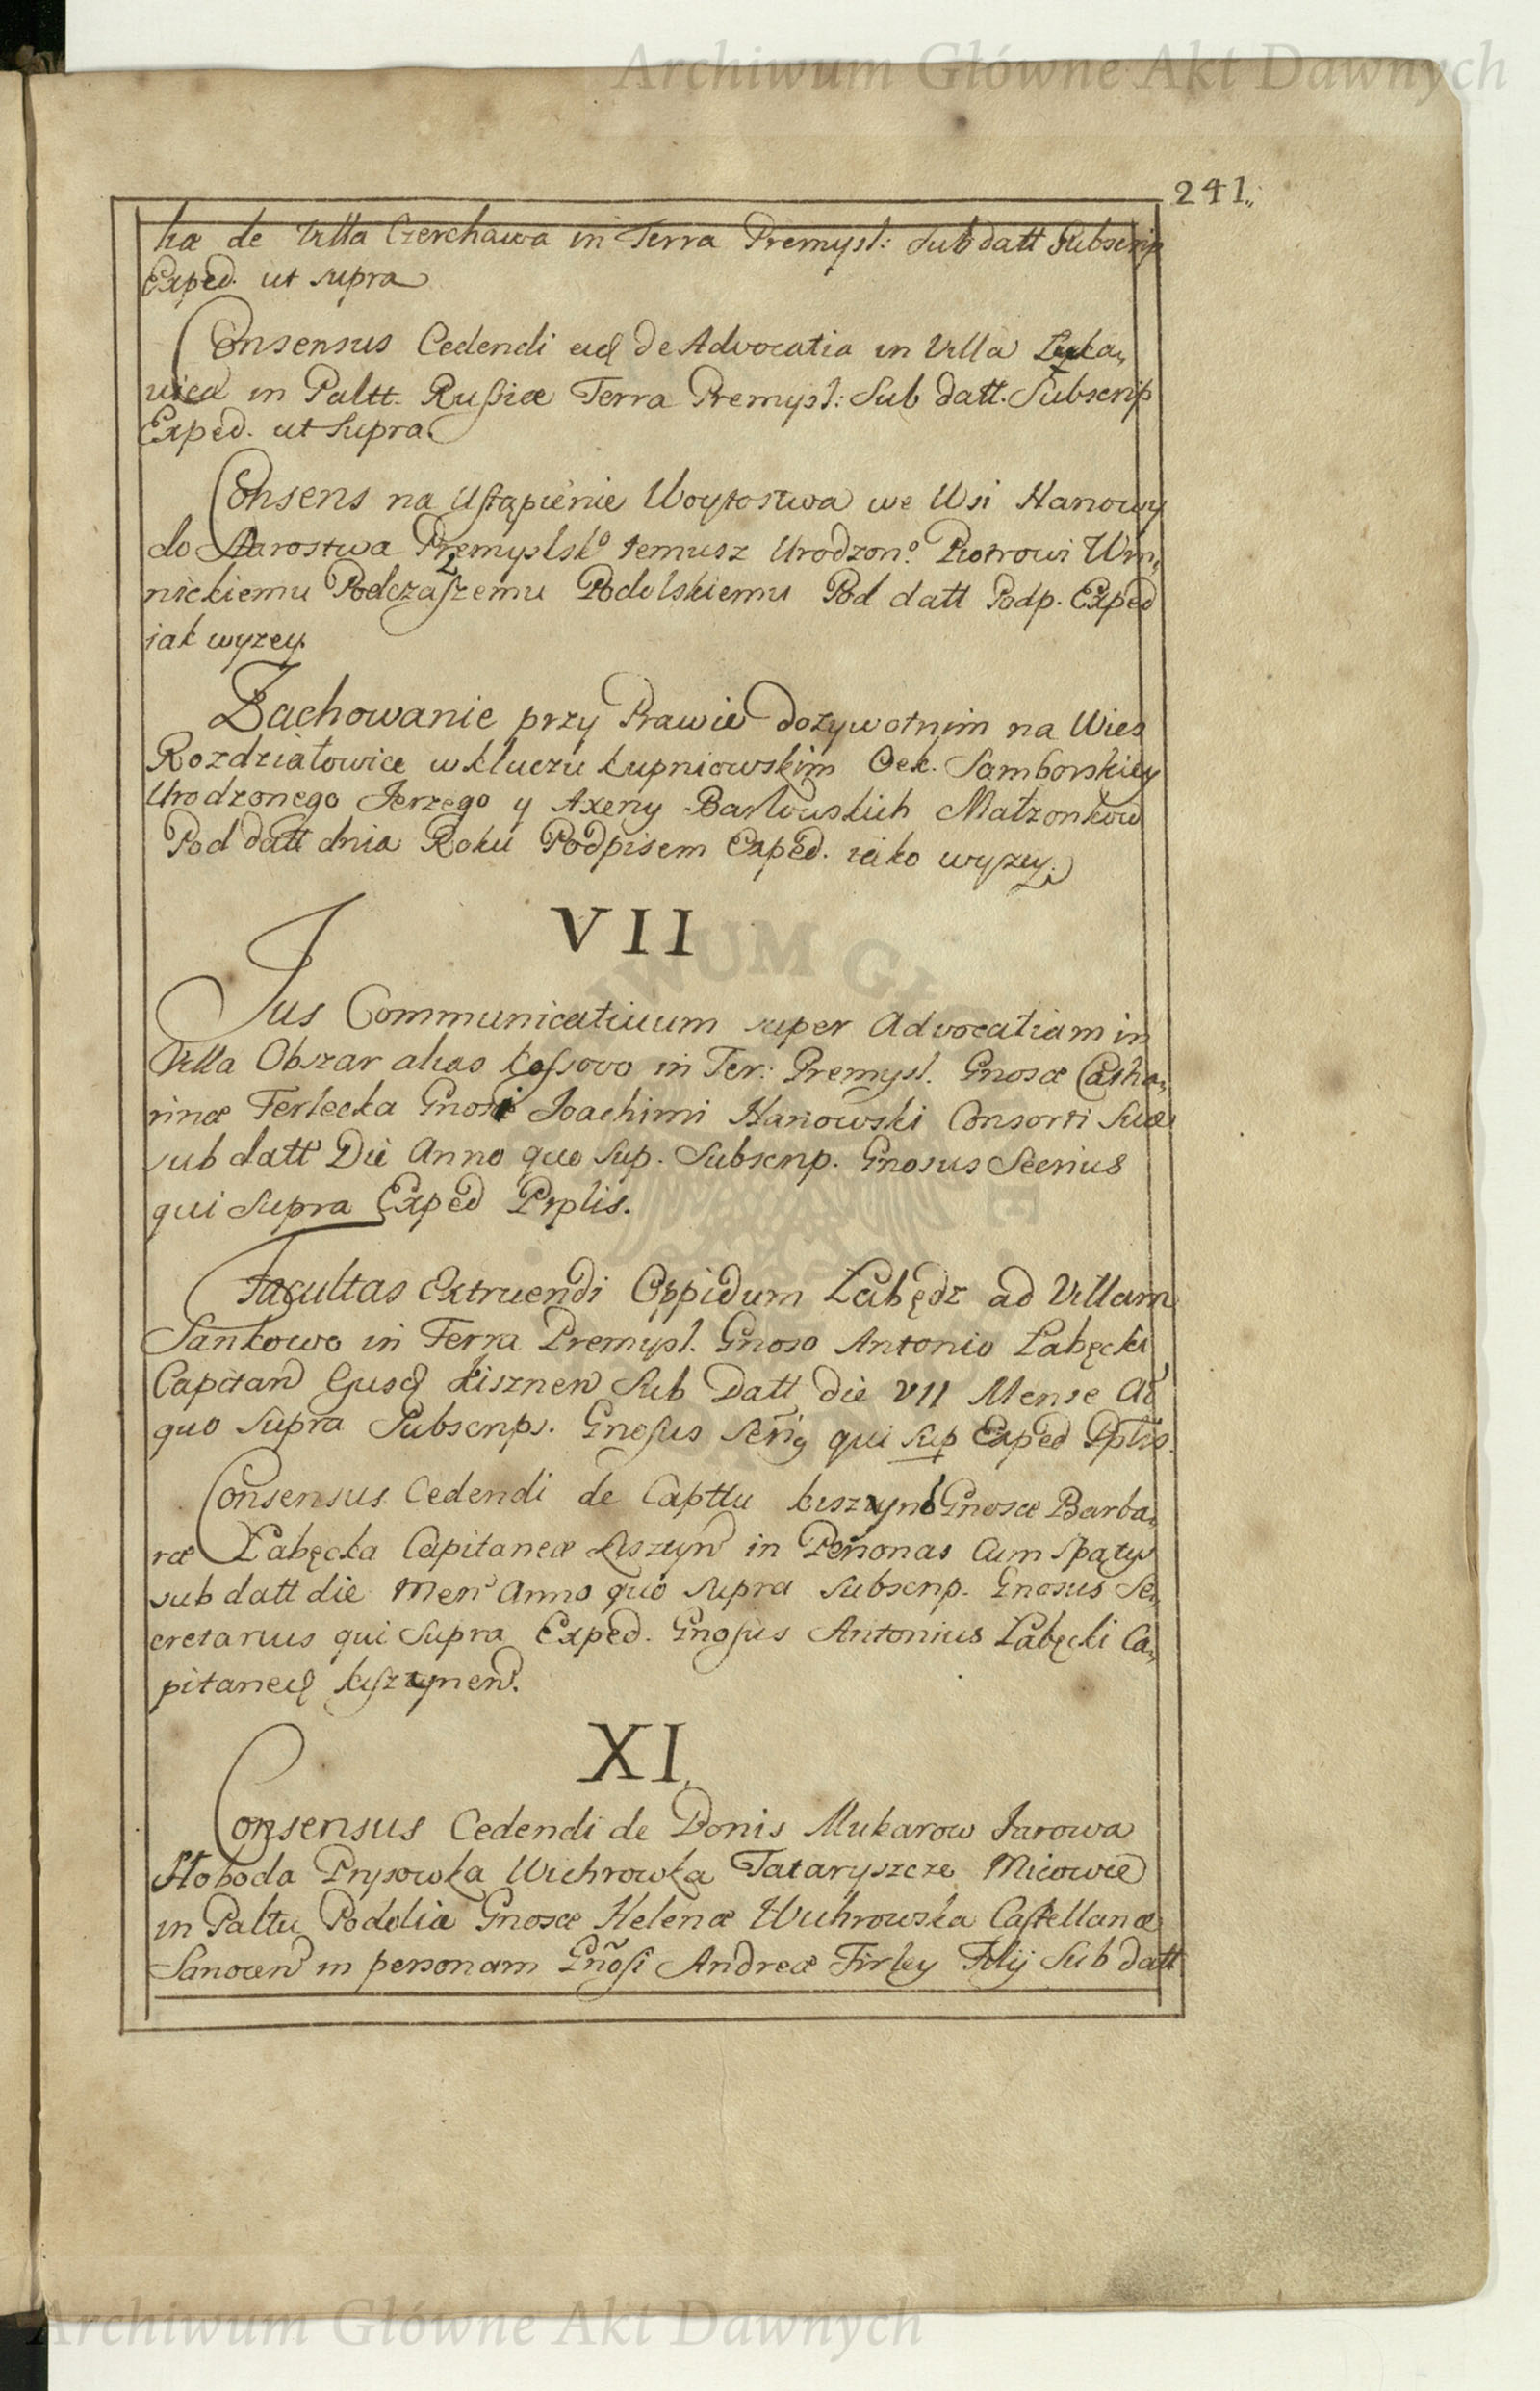 Archiwum Główne Akt Dawnych
241.
ha de Villa Czerchawa in Terra Premysl: Sub datt Subscrip
Exped. ut supra
Consensus Cedendi eid de Advocatia in Villa Luka„
vica in Paltt. Russiæ Terra Premysl: Sub datt. Subscrip
Exped. ut Supra
Consens na Ustąpienie Woytostwa we Wsi Hanowy
do Starostwa Przemyslskº temusz Urodzonº. Piotrowi Win„
nickiemu Podczaszemu Podolskiemu Pod datt Podp. Exped
iak wyzey.
Zachowanie przy Prawie dozywotnim na Wies
Rozdziałowice w kluczu Łupniowskim Oek. Samborskiey
Urodzonego Jerzego y Axeny Małzonkow
Pod datt dnia Roku Podpisem Exped. iako wyzey.
VII
Jus Communicativum super Advocatiam in
Villa Obszar alias Kossowo in Ter: Premysl. Gnosæ Catha„
rinæ Terlecka Gnosi Joachimi Hanowski Consorti Suæ
sub datt Die Anno quo Sup. Subscrip. Gnosus Secrius
qui Supra Exped Prplis.
Facultas Extruendi Oppidum Łabędz ad Villam
Sankowo in Terra Premysl. Gnoso Antonio Łabęcki
Capitan Ejusd Kisznen Sub Datt die VII Mense Aº
quo Supra Subscrips. Gnosus qui Sup Exped
Consensus Cedendi de Capttu Gnosæ Barba„
ræ Łabęcka Capitaneæ Kiszyn in Personas Cum Spatys
sub datt die Men Anno quo Supra Subscrip. Gnosus Se„
cretarius qui Supra Exped. Gnosus Antonius Łabęcki Ca„
pitaneus Kiszynen.
XI.
Consensus Cedendi de Bonis Mukarow Jarowa
Słoboda Prysowka Wichrowka Tataryszcze Micowce
in Paltu Podoliæ Gnosæ Helenæ Wichrowska Castellanæ
Sanocen in personam Gnosi Andreæ Firley Filij Sub datt
Archiwum Główne Akt Dawnych